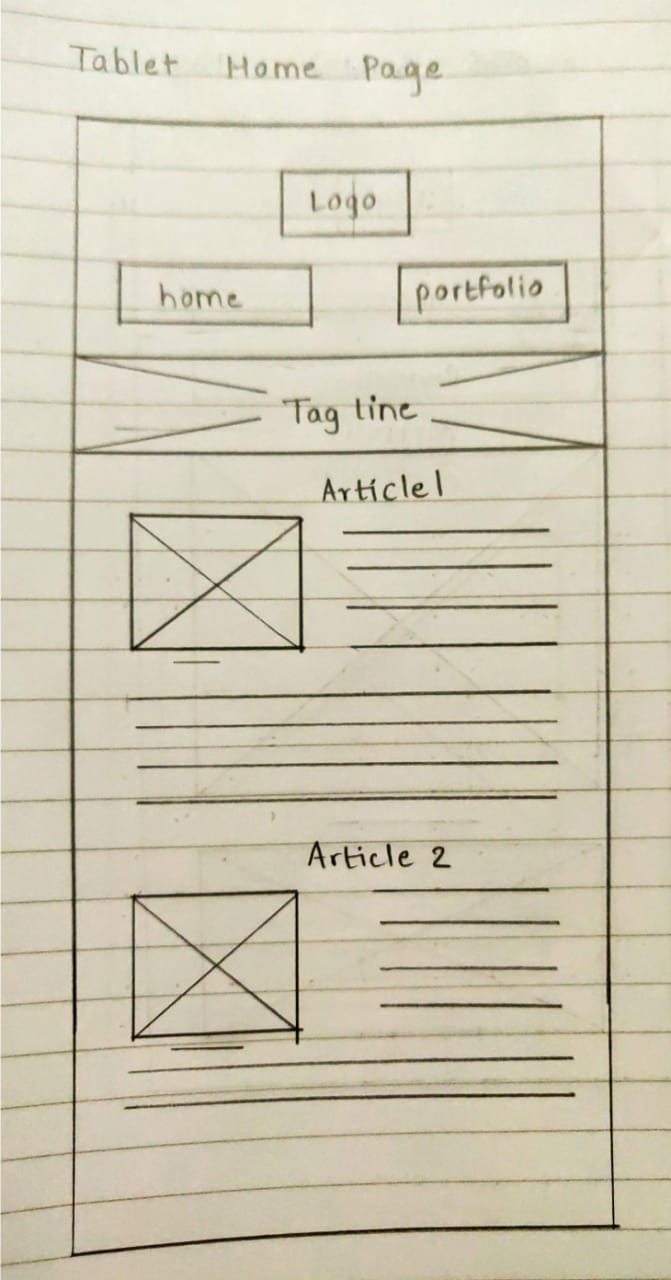 Tablet Home Page
Logo
home
portfolio
Tag line
Article1
Article 2